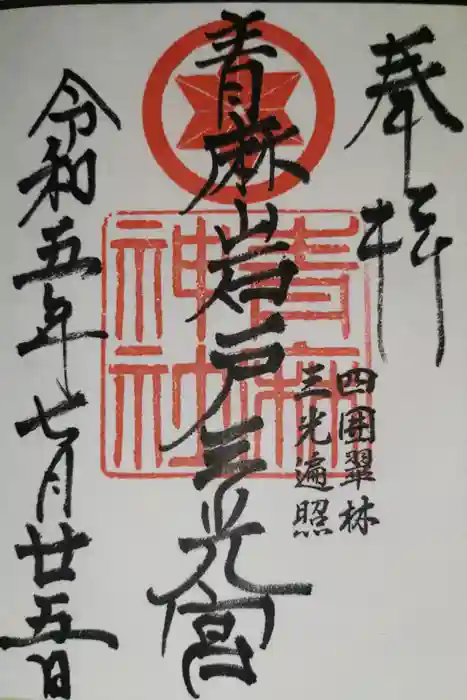 奉拝
四囲翠林
三光遍照
青麻岩戸三光宮
青麻
神社
令和五年七月廿五日